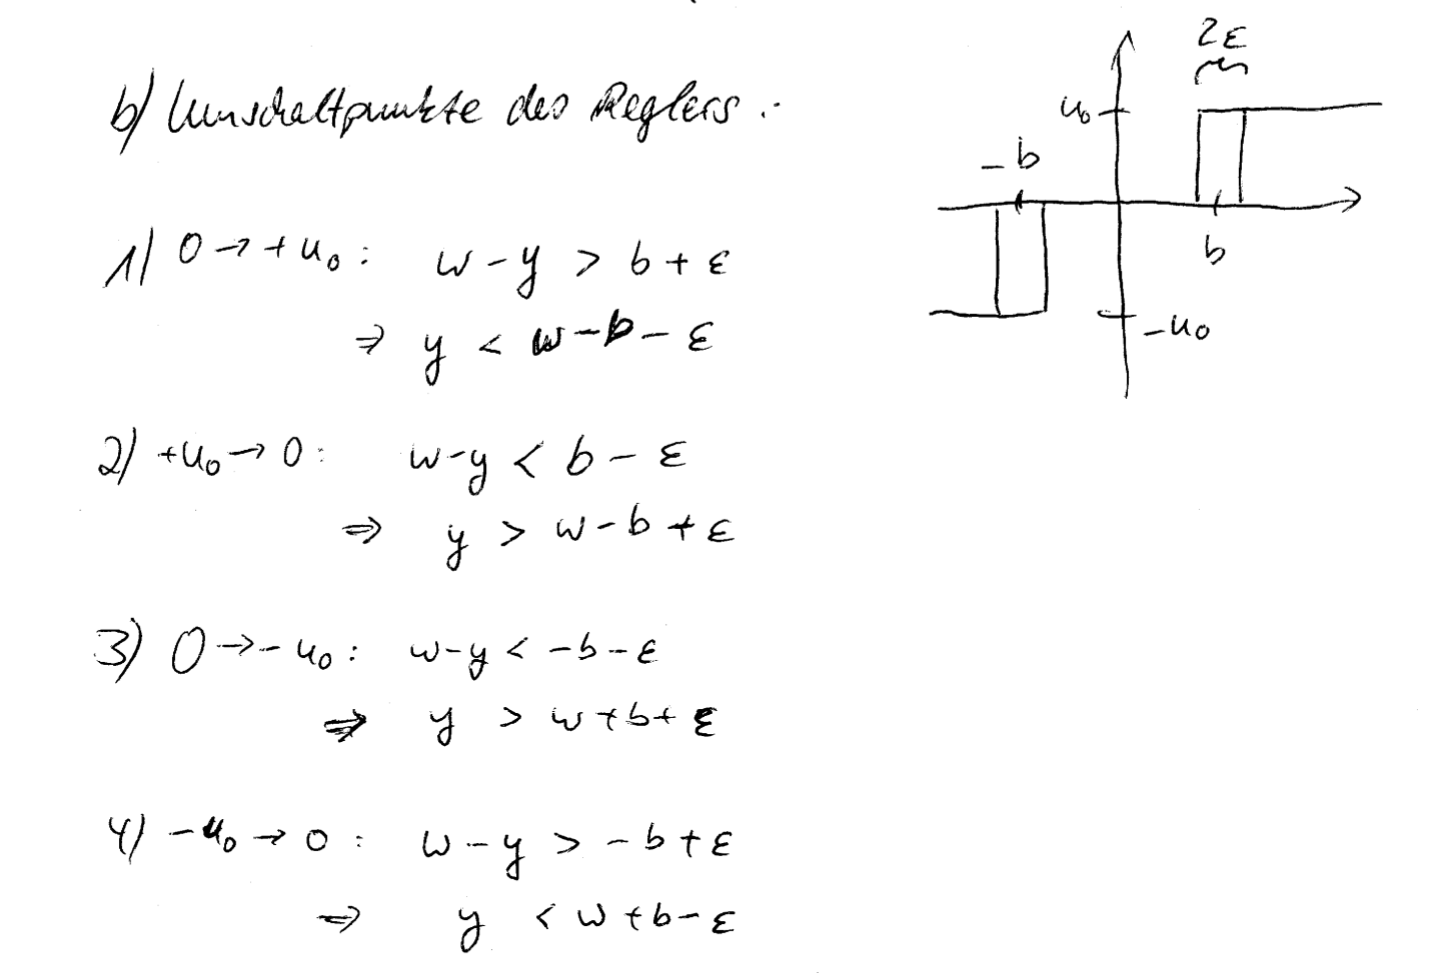 b) Umschaltpunkte des Reglers:
2ε
u₀
-b
b
-u₀
1) 0 → +u₀: w-y > b+ε
⇒ y < w-b-ε
2) +u₀ → 0: w-y < b-ε
⇒ y > w-b+ε
3) 0 → -u₀: w-y < -b-ε
⇒ y > w+b+ε
4) -u₀ → 0: w-y > -b+ε
⇒ y < w+b-ε